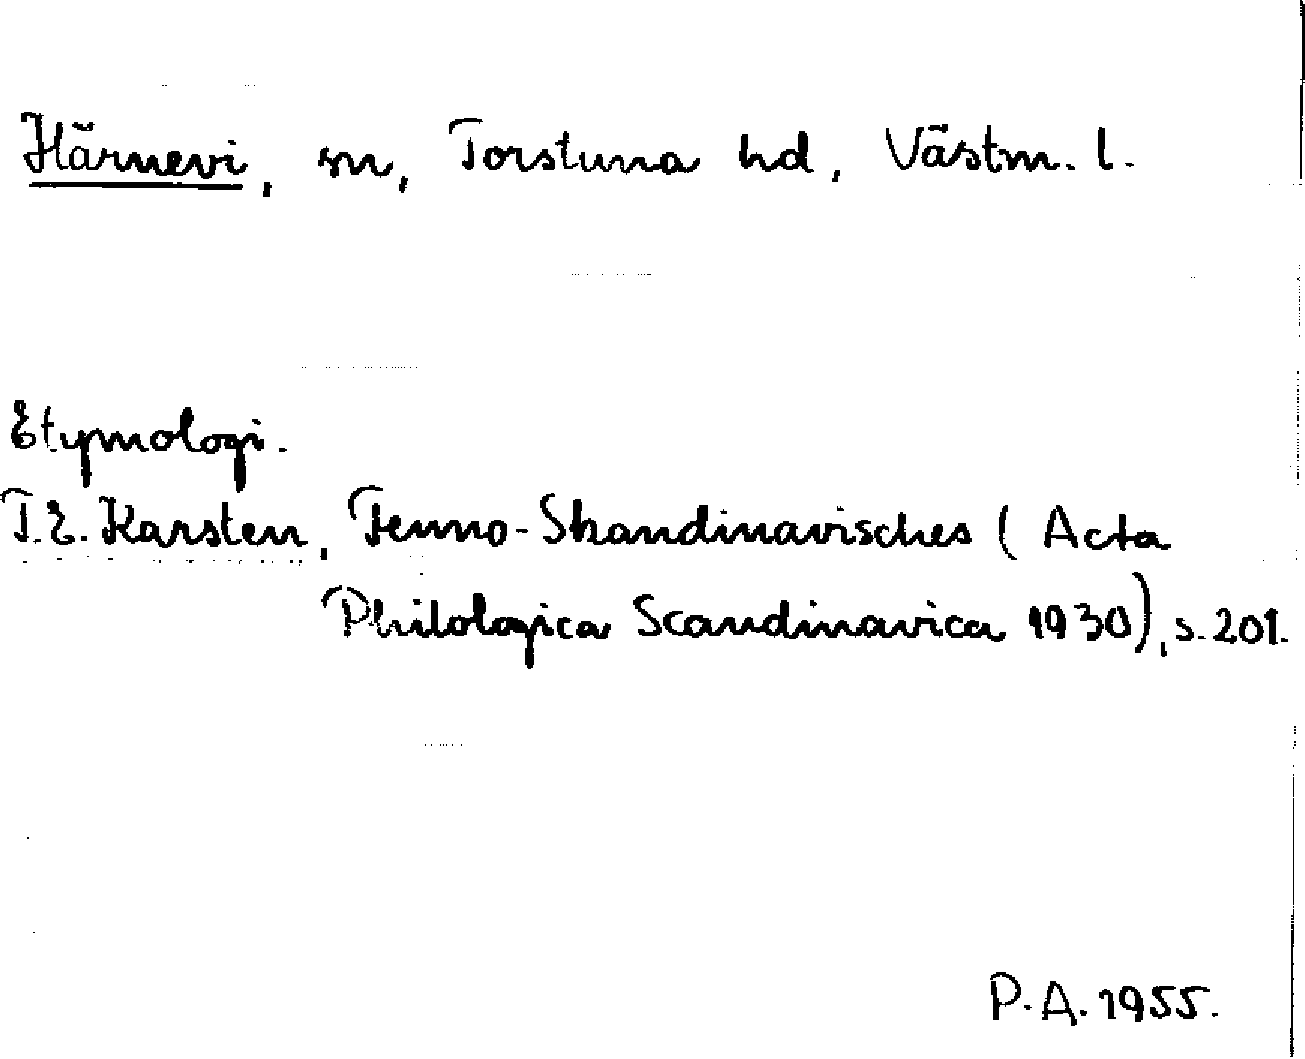 Härnevi, sn, Torstuna hd, Västm. l.
Etymologi.
T.E. Karsten, Fenno-Skandinavisches (Acta
Philologica Scandinavica 1930), s. 201.
P.A. 1955.